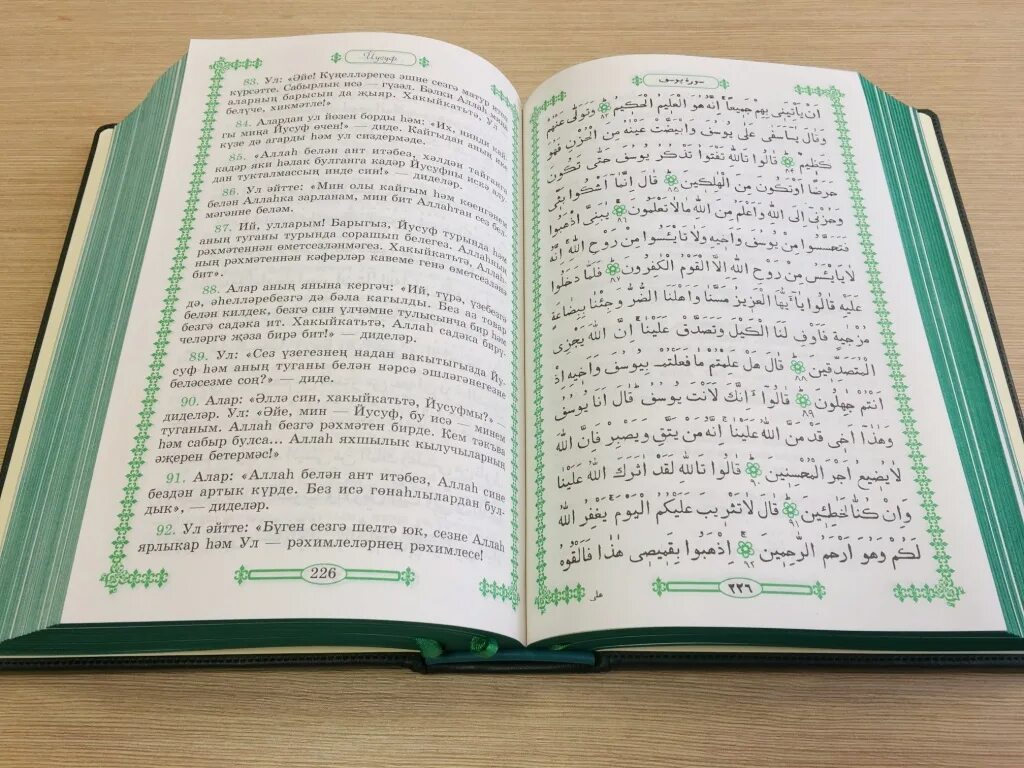 Йусуф
83. Ул: «Әйе! Күңелләрегез эшне сезгә матур итеп
күрсәтте. Сабырлык исә — гүзәл. Бәлки Аллаһ миңа
аларның барысын да җыяр. Хакыйкатьтә, Ул —
белүче, хикмәтле!»
84. Алардан ул йөзен борды һәм: «Их, нинди кай-
гы миңа Йусуф өчен!» — диде. Кайгыдан аның ике
күзе дә агарды һәм ул сиздермәде.
85. «Аллаһ белән ант итәбез, хәлдән тайганга
кадәр яки һәлак булганга кадәр Йусуфны искә алу-
дан тукталмассың инде син!» — диделәр.
86. Ул әйтте: «Мин олы кайгым һәм көенгәнем
белән Аллаһка зарланам, мин бит Аллаһтан сез бел-
мәгәнне беләм.
87. Ий, улларым! Барыгыз, Йусуф турында һәм
аның туганы турында сорашып белегез. Аллаһның
рәхмәтеннән өметсезләнмәгез. Хакыйкатьтә, Аллаһ-
ның рәхмәтеннән кәферләр кавеме генә өметсезләнә
бит».
88. Алар аның янына кергәч: «Ий, түрә, үзебезгә
дә, әһелләребезгә дә бәла кагылды. Без аз товар
белән килдек, безгә син үлчәмне тулысынча бир һәм
безгә садака ит. Хакыйкатьтә, Аллаһ садака бирү-
челәргә җәза бирә бит!» — диделәр.
89. Ул: «Сез үзегезнең надан вакытыгызда Йу-
суф һәм аның туганы белән нәрсә эшләгәнегезне
беләсезме соң?» — диде.
90. Алар: «Әллә син, хакыйкатьтә, Йусуфмы?» —
диделәр. Ул: «Әйе, мин — Йусуф, бу исә — минем
туганым. Аллаһ безгә рәхмәтен бирде. Кем тәкъва
һәм сабыр булса... Аллаһ яхшылык кылучыларның
әҗерен бетермәс!»
91. Алар: «Аллаһ белән ант итәбез, Аллаһ сине
бездән артык күрде. Без исә гөнаһлылардан бул-
дык», — диделәр.
92. Ул әйтте: «Бүген сезгә шелтә юк, сезне Аллаһ
ярлыкар һәм Ул — рәхимлеләрнең рәхимлесе!
226
سورة يوسف
اَنْ يَأْتِيَنِى بِهِمْ جَمِيعًا اِنَّهُ هُوَ الْعَلِيمُ الْحَكِيمُ ٨٣ وَتَوَلّٰى عَنْهُمْ
وَقَالَ يَٓا اَسَفٰى عَلٰى يُوسُفَ وَابْيَضَّتْ عَيْنٰهُ مِنَ الْحُزْنِ فَهُوَ
كَظِيمٌ ٨٤ قَالُوا تَاللّٰهِ تَفْتَؤُا تَذْكُرُ يُوسُفَ حَتّٰى تَكُونَ
حَرَضًا اَوْ تَكُونَ مِنَ الْهٰلِكِينَ ٨٥ قَالَ اِنَّمَٓا اَشْكُوا بَثّٖى
وَحُزْنٖى اِلَى اللّٰهِ وَاَعْلَمُ مِنَ اللّٰهِ مَا لَا تَعْلَمُونَ ٨٦ يٰبَنِىَّ اذْهَبُوا
فَتَحَسَّسُوا مِنْ يُوسُفَ وَاَخٖيهِ وَلَا تَايْـَٔسُوا مِنْ رَوْحِ اللّٰهِ اِنَّهُ
لَا يَايْـَٔسُ مِنْ رَوْحِ اللّٰهِ اِلَّا الْقَوْمُ الْكٰفِرُونَ ٨٧ فَلَمَّا دَخَلُوا
عَلَيْهِ قَالُوا يَٓا اَيُّهَا الْعَزٖيزُ مَسَّنَا وَاَهْلَنَا الضُّرُّ وَجِئْنَا بِبِضَاعَةٍ
مُزْجٰيةٍ فَاَوْفِ لَنَا الْكَيْلَ وَتَصَدَّقْ عَلَيْنَا اِنَّ اللّٰهَ يَجْزِى
الْمُتَصَدِّقٖينَ ٨٨ قَالَ هَلْ عَلِمْتُمْ مَا فَعَلْتُمْ بِيُوسُفَ وَاَخٖيهِ اِذْ
اَنْتُمْ جٰهِلُونَ ٨٩ قَالُٓوا ءَاِنَّكَ لَاَنْتَ يُوسُفُ قَالَ اَنَا يُوسُفُ
وَهٰذَٓا اَخٖى قَدْ مَنَّ اللّٰهُ عَلَيْنَا اِنَّهُ مَنْ يَتَّقِ وَيَصْبِرْ فَاِنَّ اللّٰهَ
لَا يُضٖيعُ اَجْرَ الْمُحْسِنٖينَ ٩٠ قَالُوا تَاللّٰهِ لَقَدْ اٰثَرَكَ اللّٰهُ عَلَيْنَا
وَاِنْ كُنَّا لَخٰطِئٖينَ ٩١ قَالَ لَا تَثْرٖيبَ عَلَيْكُمُ الْيَوْمَ يَغْفِرُ اللّٰهُ
لَكُمْ وَهُوَ اَرْحَمُ الرّٰحِمٖينَ ٩٢ اِذْهَبُوا بِقَمٖيصٖى هٰذَا فَاَلْقُوهُ
٢٢٦
على